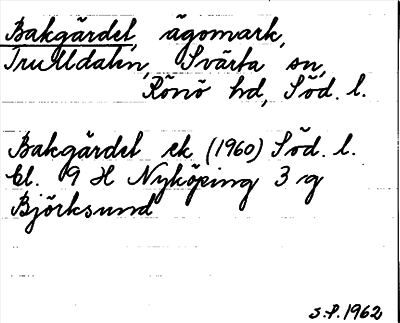 Bakgärdet, ägomark,
Trulldalen, Svärta sn,
Rönö hd, Söd. l.
Bakgärdet ek. (1960) Söd. l.
bl. 9 H Nyköping 3 g
Björksund
S.P. 1962